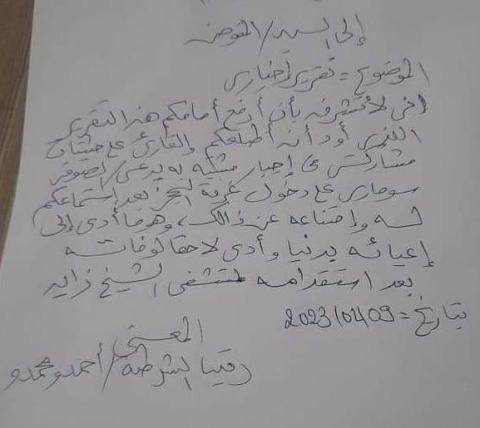 إلى السيد/المفوض
الموضوع = تقرير إخباري
إني لأتشرف بأن أرفع أمامكم هذا التقرير
الذي أود أن أطلعكم والقارئ على حيثيات
مشاركتي في إجبار مشتبه به يدعى الصوفي
سومارى على دخول غرفة الحجز بعد استماعكم
له وامتناعه عن ذالك، وهو ما أدى إلى
إعيائه بدنيا وأدى لاحقا لوفاته
بعد استقدامه لمستشفى الشيخ زايد
بتاريخ = 2023/04/09
المعني
رقيب الشرطة/أحمدو محمدو